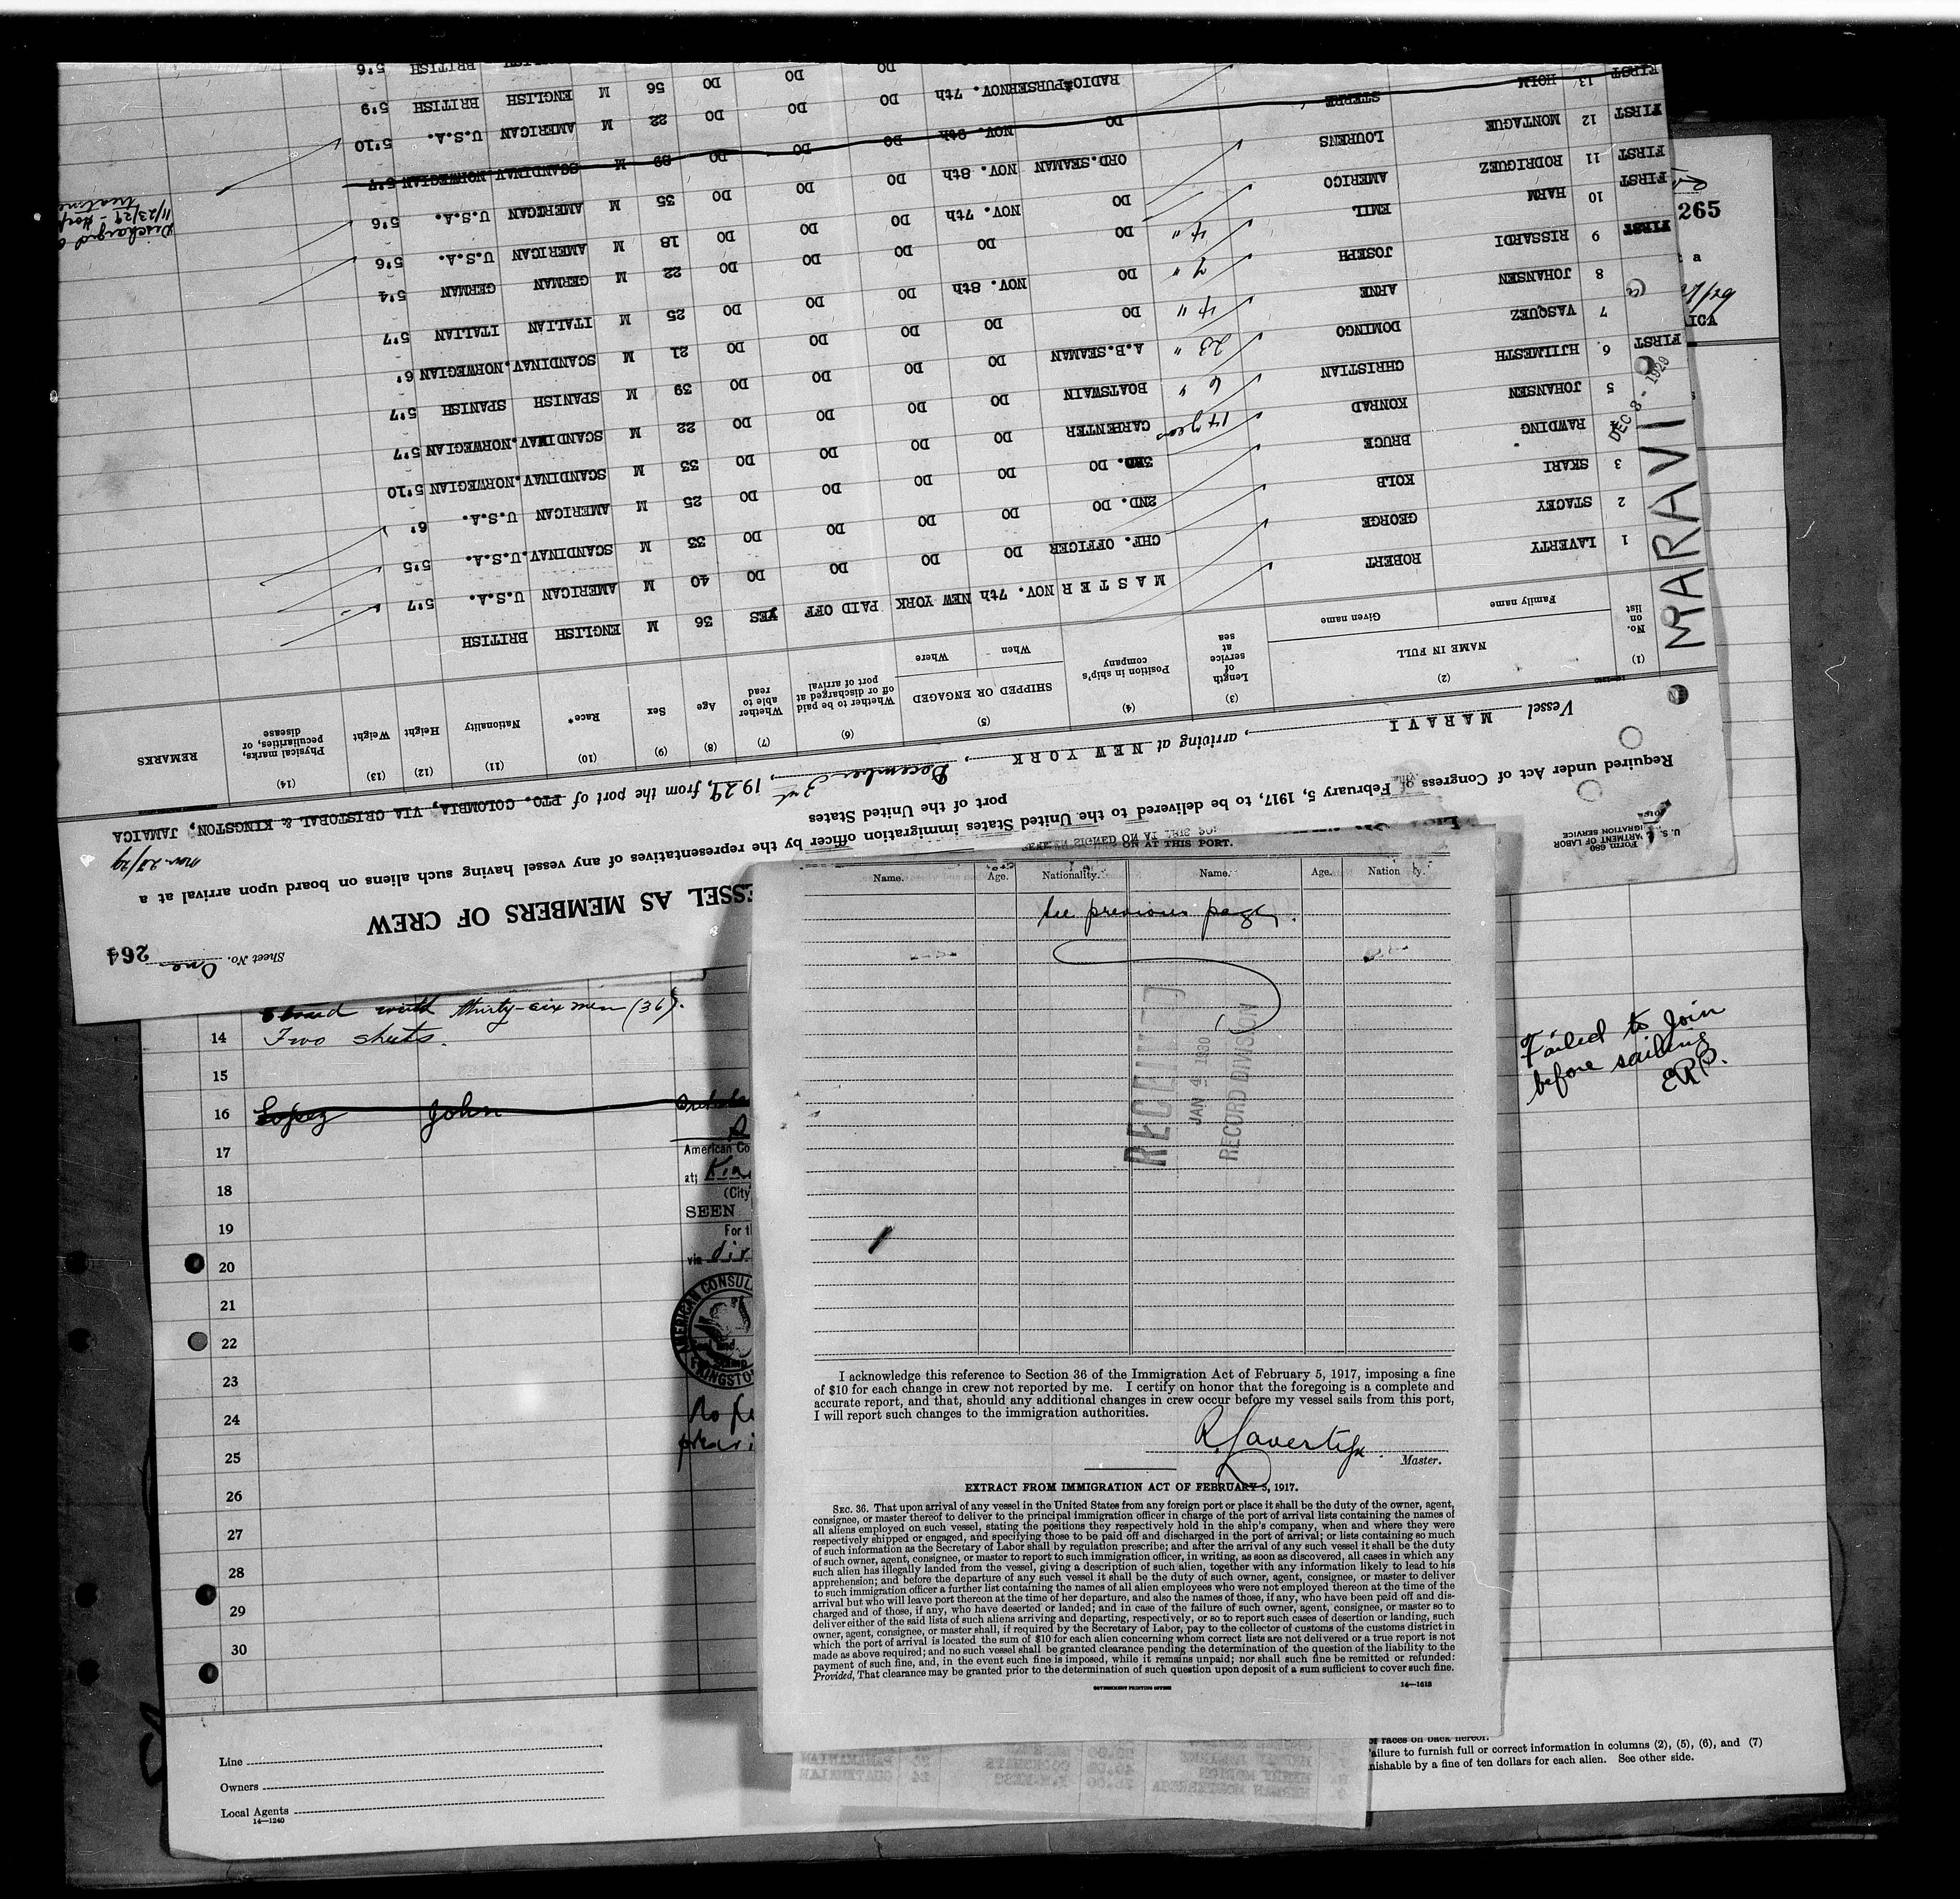 Sheet No. One 264
ESSEL AS MEMBERS OF CREW
U. S.
Form 680
Required under Act of Congress of February 5, 1917, to be delivered to the United States immigration officer by the representatives of any vessel having such aliens on board upon arrival at a
port of the United States
Vessel MARAVI, arriving at NEW YORK, December 3rd, 1929, from the port of PTO. COLOMBIA, VIA CRISTOBAL & KINGSTON, JAMAICA
Nov. 27/29
(1) (2) (3) (4) (5) (6) (7) (8) (9) (10) (11) (12) (13) (14)
No. on list NAME IN FULL Length of service at sea Position in ship's company SHIPPED OR ENGAGED Whether to be paid off or discharged at port of arrival Whether able to read Age Sex Race* Nationality Height Weight Physical marks, peculiarities, or disease REMARKS
Family name Given name When Where
MARAVI
DEC 8 - 1929
1 LAVERTY ROBERT MASTER NOV. 7th NEW YORK PAID OFF YES 36 M ENGLISH BRITISH
2 STACEY GEORGE CHF. OFFICER DO DO DO DO 40 M AMERICAN U.S.A. 5'7
3 SKARI KOLB 2ND. DO DO DO DO DO 33 M SCANDINAV. U.S.A. 5'5
RAWDING BRUCE 3RD. DO DO DO DO DO 25 M AMERICAN U.S.A. 6'
5 JOHANSEN KONRAD 14 years CARPENTER DO DO DO DO 33 M SCANDINAV. NORWEGIAN 5'10
FIRST 6 HJILMESTH CHRISTIAN 6 " BOATSWAIN DO DO DO DO 22 M SCANDINAV. NORWEGIAN 5'7
7 VASQUEZ DOMINGO 23 " A.B.SEAMAN DO DO DO DO 39 M SPANISH SPANISH 5'7
8 JOHANSEN ARNE 4 " DO DO DO DO DO 21 M SCANDINAV. NORWEGIAN 6'
FIRST 9 RISSARDI JOSEPH 7 " DO NOV. 8th DO DO DO 25 M ITALIAN ITALIAN 5'7
FIRST 10 HARM EMIL 4 " DO DO DO DO DO 22 M GERMAN GERMAN 5'4
FIRST 11 RODRIGUEZ AMERICO DO NOV. 7th DO DO DO 18 M AMERICAN U.S.A. 5'6
FIRST 12 MONTAGUE LOURENS ORD.SEAMAN NOV. 8th DO DO DO 35 M AMERICAN U.S.A. 5'6
FIRST 13 HOLM DO NOV. 9th DO DO DO 29 M SCANDINAV. NORWEGIAN 5'7
Discharged
11/23/29
RADIO&PURSER NOV. 7th DO DO DO 22 M AMERICAN U.S.A. 5'10
DO DO DO 56 M ENGLISH BRITISH 5'9
BRITISH 5'6
265
a
ON AT THIS PORT.
Name. Age. Nationality. Name. Age. Nationality.
See previous page.
RECEIVED
JAN 4 1930
RECORD DIVISION
I acknowledge this reference to Section 36 of the Immigration Act of February 5, 1917, imposing a fine
of $10 for each change in crew not reported by me. I certify on honor that the foregoing is a complete and
accurate report, and that, should any additional changes in crew occur before my vessel sails from this port,
I will report such changes to the immigration authorities.
R. Laverty
Master.
EXTRACT FROM IMMIGRATION ACT OF FEBRUARY 5, 1917.
SEC. 36. That upon arrival of any vessel in the United States from any foreign port or place it shall be the duty of the owner, agent,
consignee, or master thereof to deliver to the principal immigration officer in charge of the port of arrival lists containing the names of
all aliens employed on such vessel, stating the positions they respectively hold in the ship's company, when and where they were
respectively shipped or engaged, and specifying those to be paid off and discharged in the port of arrival; or lists containing so much
of such information as the Secretary of Labor shall by regulation prescribe; and after the arrival of any such vessel it shall be the duty
of such owner, agent, consignee, or master to report to such immigration officer, in writing, as soon as discovered, all cases in which any
such alien has illegally landed from the vessel, giving a description of such alien, together with any information likely to lead to his
apprehension; and before the departure of any such vessel it shall be the duty of such owner, agent, consignee, or master to deliver
to such immigration officer a further list containing the names of all alien employees who were not employed thereon at the time of the
arrival but who will leave port thereon at the time of her departure, and also the names of those, if any, who have been paid off and dis-
charged and of those, if any, who have deserted or landed; and in case of the failure of such owner, agent, consignee, or master so to
deliver either of the said lists of such aliens arriving and departing, respectively, or so to report such cases of desertion or landing, such
owner, agent, consignee, or master shall, if required by the Secretary of Labor, pay to the collector of customs of the customs district in
which the port of arrival is located the sum of $10 for each alien concerning whom correct lists are not delivered or a true report is not
made as above required; and no such vessel shall be granted clearance pending the determination of the question of the liability to the
payment of such fine, and, in the event such fine is imposed, while it remains unpaid; nor shall such fine be remitted or refunded:
Provided, That clearance may be granted prior to the determination of such question upon deposit of a sum sufficient to cover such fine.
GOVERNMENT PRINTING OFFICE
14—1618
with thirty-six men (36).
14 Two sheets.
15
16 Lopez John
17
18
19
20
21
22
23
24
25
26
27
28
29
30
American Co
at
(City
SEEN
For t
via dir
AMERICAN CONSUL
KINGSTO
Failed to Join
before sailing
ERP.
Line
Owners
Local Agents
14—1240
of races on back hereof.
ailure to furnish full or correct information in columns (2), (5), (6), and (7)
nishable by a fine of ten dollars for each alien. See other side.